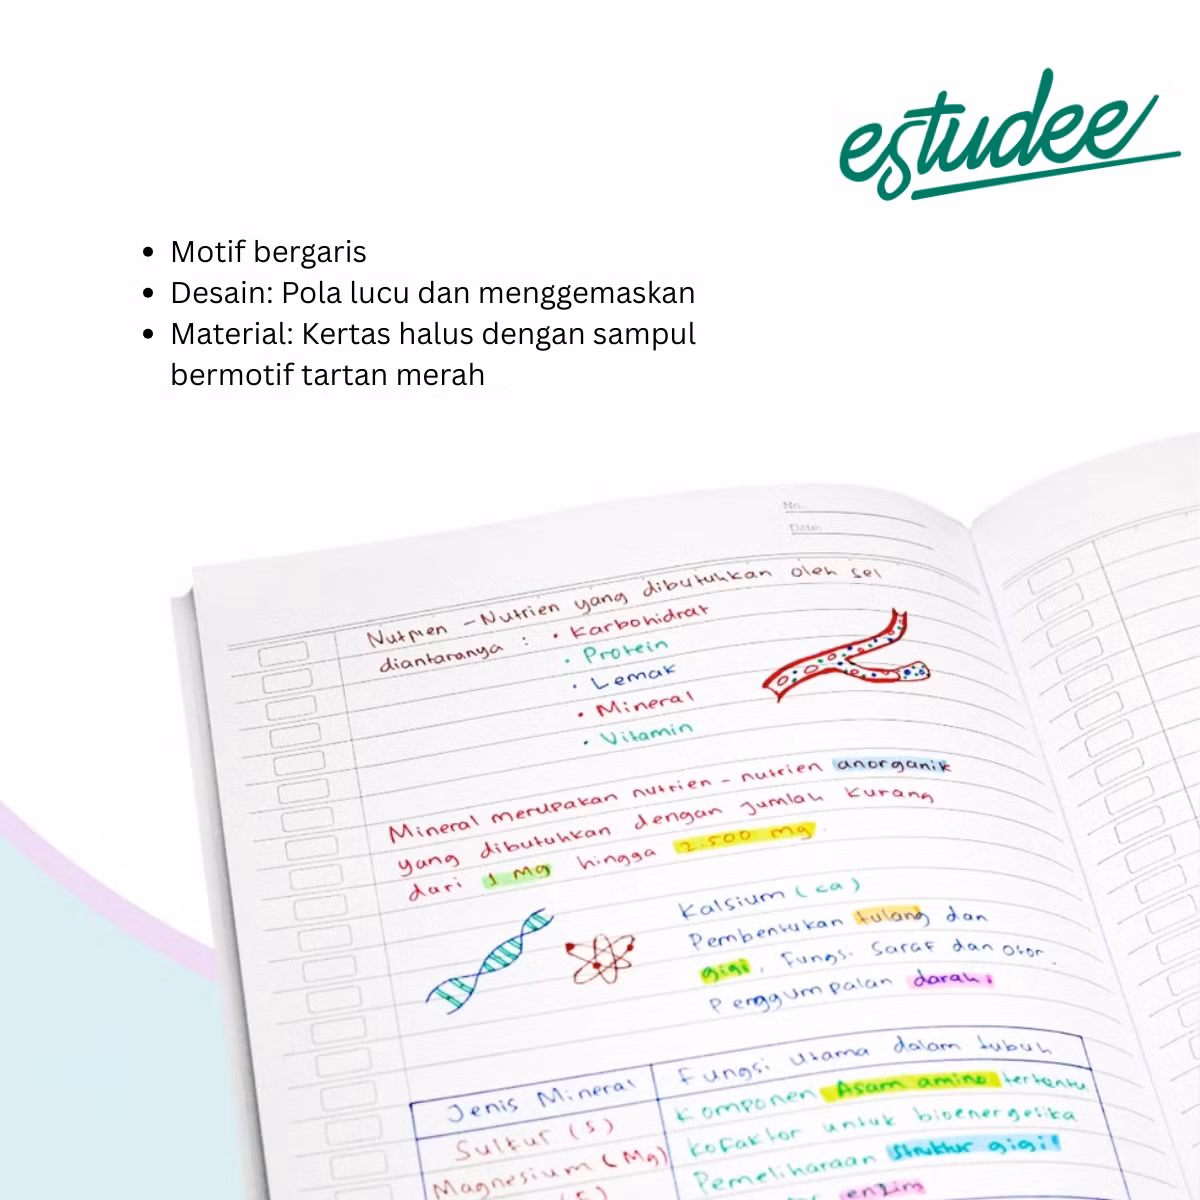 estudee
Motif bergaris
Desain: Pola lucu dan menggemaskan
Material: Kertas halus dengan sampul
bermotif tartan merah
No.
Date:
Nutrien - Nutrien yang dibutuhkan oleh sel
diantaranya : • Karbohidrat
• Protein
• Lemak
• Mineral
• Vitamin
Mineral merupakan nutrien - nutrien anorganik
yang dibutuhkan dengan jumlah kurang
dari 1 Mg hingga 2.500 mg.
Kalsium (ca)
Pembentukan tulang dan
gigi, Fungsi Saraf dan otot.
Penggumpalan darah.
Jenis Mineral
Fungsi Utama dalam tubuh
Sulfur (S)
Komponen Asam amino tertentu
Kofaktor untuk bioenergetika
Magnesium (Mg)
Pemeliharaan Struktur gigi
enzim